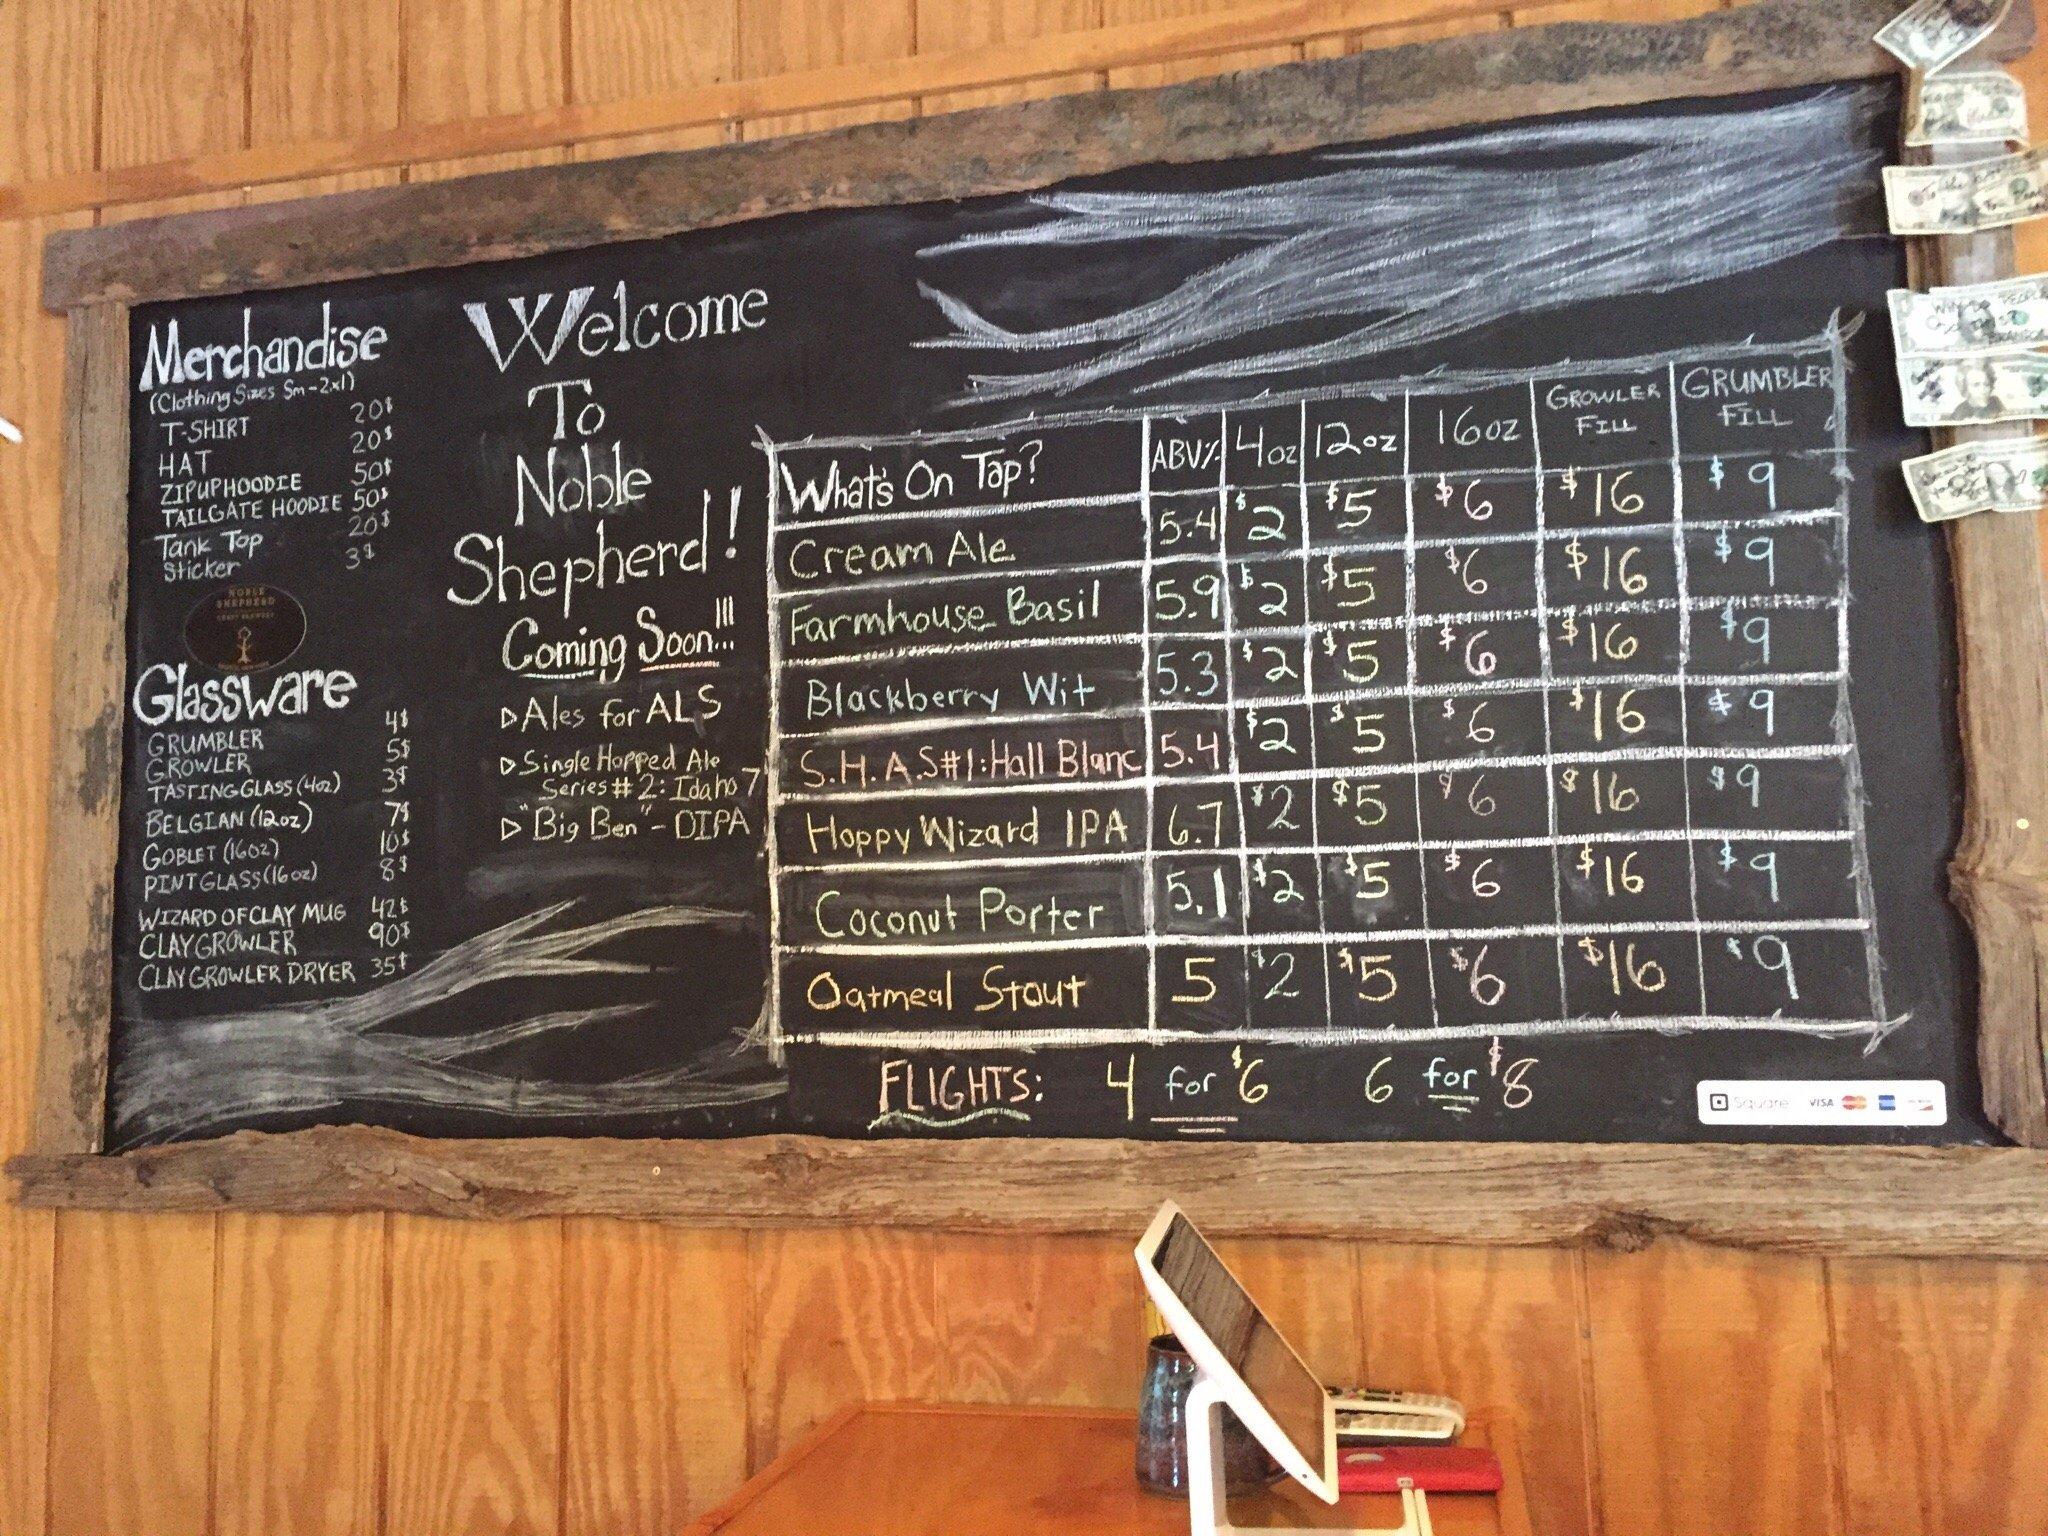 Merchandise
(Clothing Sizes Sm-2xl)
T-SHIRT 20$
HAT 20$
ZIPUPHOODIE 50$
TAILGATE HOODIE 50$
Tank Top 20$
Sticker 3$
NOBLE
SHEPHERD
CRAFT BREWERY
Glassware
GRUMBLER 4$
GROWLER 5$
TASTING GLASS (4oz) 3$
BELGIAN (12oz) 7$
GOBLET (16oz) 10$
PINT GLASS (16oz) 8$
WIZARD OF CLAY MUG 42$
CLAY GROWLER 90$
CLAY GROWLER DRYER 35$
Welcome
To
Noble
Shepherd!
Coming Soon!!!
Ales for ALS
Single Hopped Ale
Series #2: Idaho 7
"Big Ben" - DIPA
What's On Tap? ABV% 4oz 12oz 16oz GROWLER FILL GRUMBLER FILL
Cream Ale 5.4 $2 $5 $6 $16 $9
Farmhouse Basil 5.9 $2 $5 $6 $16 $9
Blackberry Wit 5.3 $2 $5 $6 $16 $9
S.H.A.S#1:Hall Blanc 5.4 $2 $5 $6 $16 $9
Hoppy Wizard IPA 6.7 $2 $5 $6 $16 $9
Coconut Porter 5.1 $2 $5 $6 $16 $9
Oatmeal Stout 5 $2 $5 $6 $16 $9
FLIGHTS: 4 for $6 6 for $8
Square VISA